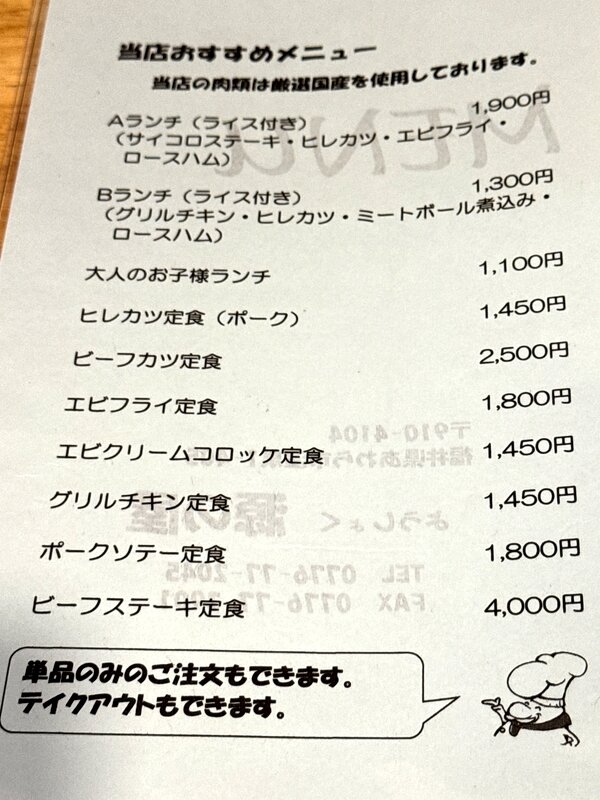 当店おすすめメニュー
当店の肉類は厳選国産を使用しております。
Aランチ（ライス付き） 1,900円
（サイコロステーキ・ヒレカツ・エビフライ・
ロースハム）
Bランチ（ライス付き） 1,300円
（グリルチキン・ヒレカツ・ミートボール煮込み・
ロースハム）
大人のお子様ランチ 1,100円
ヒレカツ定食（ポーク） 1,450円
ビーフカツ定食 2,500円
エビフライ定食 1,800円
エビクリームコロッケ定食 1,450円
グリルチキン定食 1,450円
ポークソテー定食 1,800円
ビーフステーキ定食 4,000円
単品のみのご注文もできます。
テイクアウトもできます。
MENU
〒910-4104
福井県あわら市
ようしょく
TEL 0776-77-2045
FAX 0776-77-2001